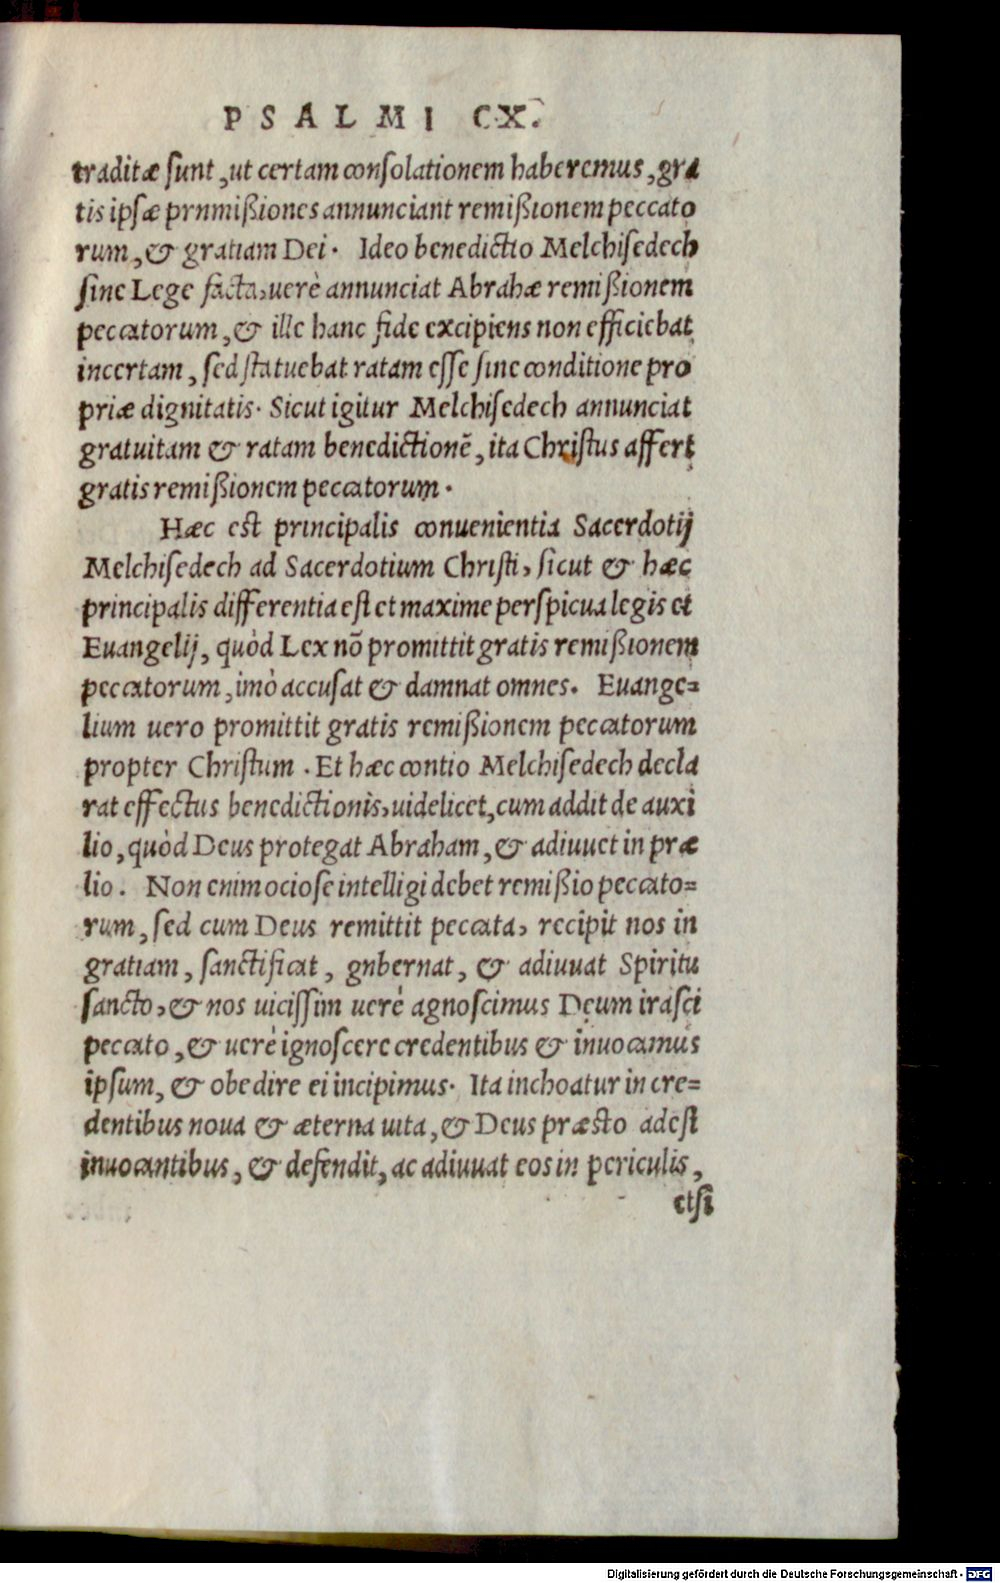 PSALMI CX.
traditæ sunt, ut certam consolationem haberemus, gra
tis ipsæ prnmißiones annunciant remißionem peccato
rum, & gratiam Dei. Ideo benedictio Melchisedech
sine Lege facta, uerè annunciat Abrahæ remißionem
peccatorum, & ille hanc fide excipiens non efficiebat
incertam, sed statuebat ratam esse sine conditione pro
priæ dignitatis. Sicut igitur Melchisedech annunciat
gratuitam & ratam benedictionẽ, ita Christus affert
gratis remißionem peccatorum.
Hæc est principalis conuenientia Sacerdotij
Melchisedech ad Sacerdotium Christi, sicut & hæc
principalis differentia est et maxime perspicua legis et
Euangelij, quòd Lex nõ promittit gratis remißionem
peccatorum, imò accusat & damnat omnes. Euange=
lium uero promittit gratis remißionem peccatorum
propter Christum. Et hæc contio Melchisedech decla
rat effectus benedictionis, uidelicet, cum addit de auxi
lio, quòd Deus protegat Abraham, & adiuuet in præ
lio. Non enim ociose intelligi debet remißio peccato=
rum, sed cum Deus remittit peccata, recipit nos in
gratiam, sanctificat, gnbernat, & adiuuat Spiritu
sancto, & nos uicissim uerè agnoscimus Deum irasci
peccato, & uerè ignoscere credentibus & inuocamus
ipsum, & obedire ei incipimus. Ita inchoatur in cre=
dentibus noua & æterna uita, & Deus præsto adest
inuocantibus, & defendit, ac adiuuat eos in periculis,
etsi
Digitalisierung gefördert durch die Deutsche Forschungsgemeinschaft - DFG